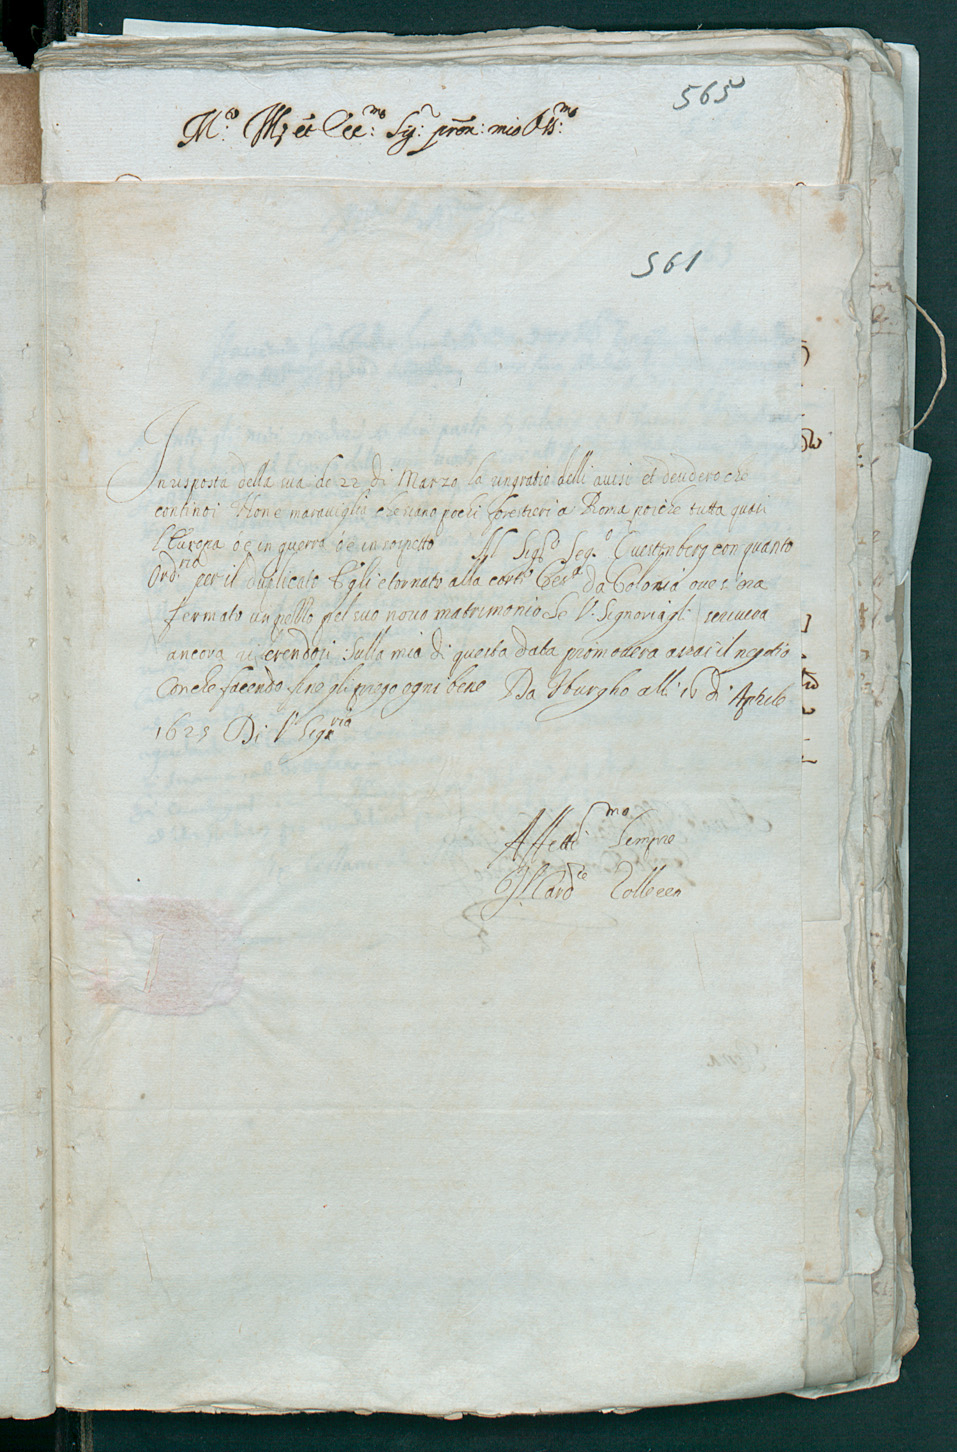 565
M.to Ill.re et Ecc.mo Sig.r pron: mio Oss.mo
561
In risposta della sua de 22 di Marzo la ringratio delli avisi et desidero che
continoi Non è maraviglia che siano pochi forestieri a Roma poiche tutta quasi
l'Europa o è in guerra o è in sospetto Al Sig.r Seg.o Questenberg con quanto
Ord.rio per il duplicato Egli è tornato alla corte Ces.a da Colonia ove s'era
fermato un pezzo pel suo novo matrimonio Se V. Signoria gli scriveva
ancora riferendosi sulla mia di questa data promoverà assai il negotio
Con che facendo fine gli prego ogni bene Da Iburgho alli 16 di Aprile
1625 Di V. Sig.ria
Aff.etti.mo sempre